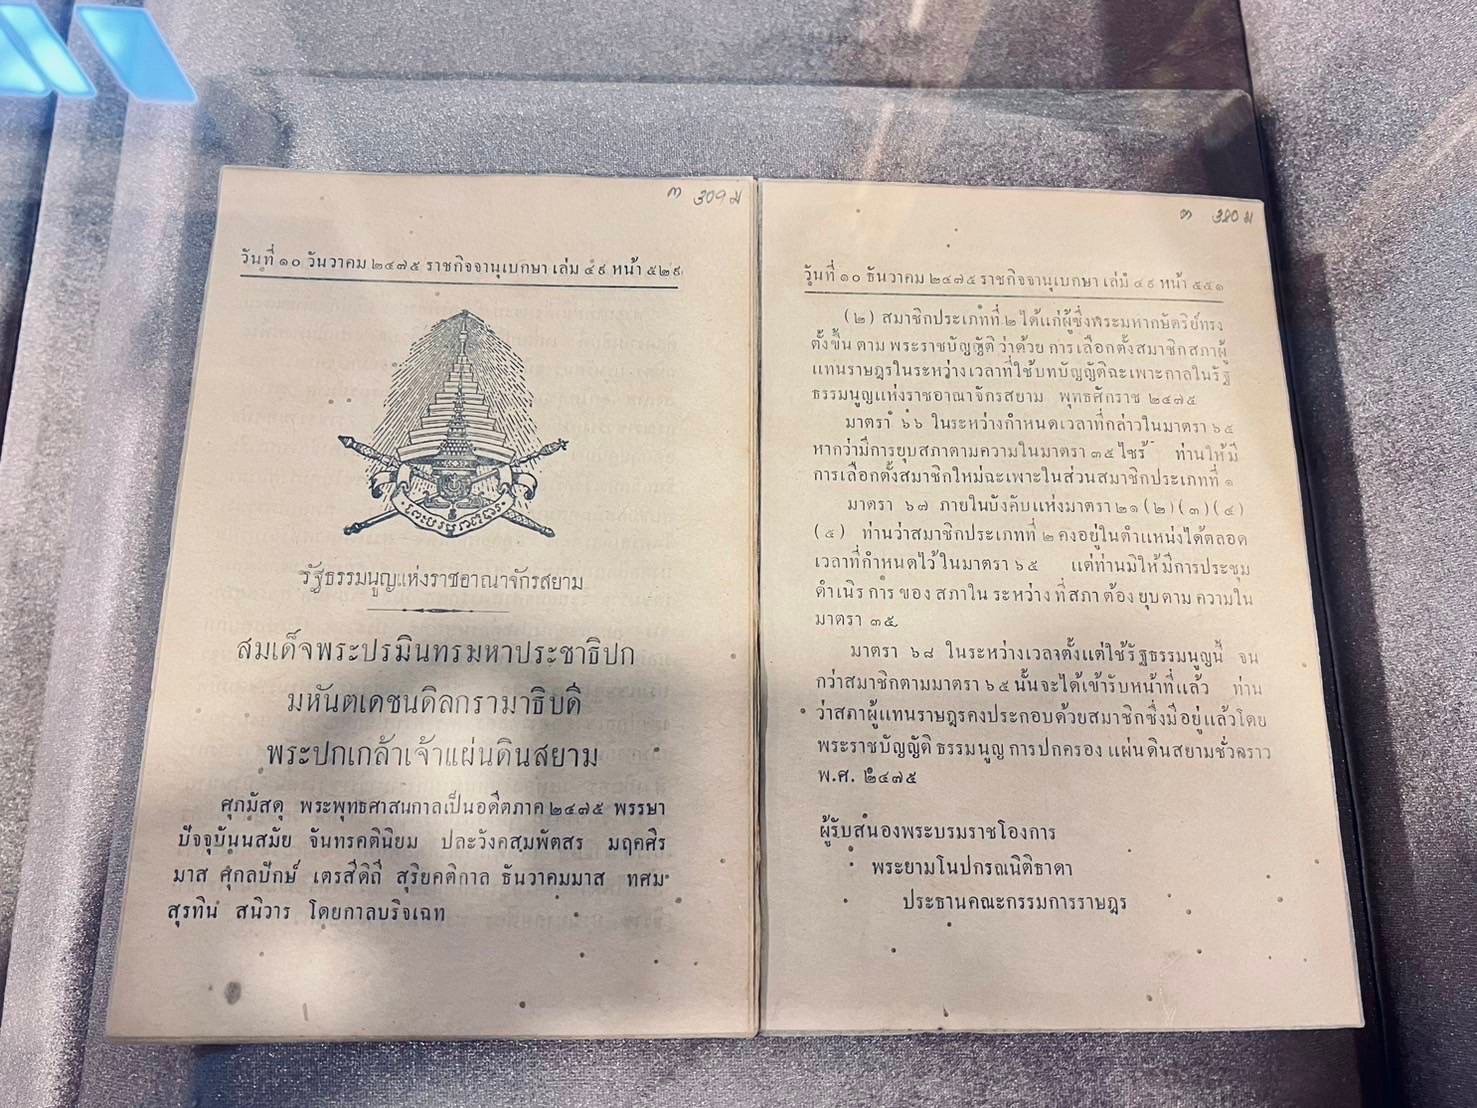 ต 309 ม
วันที่ ๑๐ วันวาคม ๒๔๗๕ ราชกิจจานุเบกษา เล่ม ๔๙ หน้า ๕๒๙
รัฐธรรมนูญแห่งราชอาณาจักรสยาม
สมเด็จพระปรมินทรมหาประชาธิปก
มหันตเดชนดิลกรามาธิบดี
พระปกเกล้าเจ้าแผ่นดินสยาม
ศุภมัสดุ พระพุทธศาสนกาลเป็นอดีตภาค ๒๔๗๕ พรรษา
ปัจจุบันนสมัย จันทรคตินิยม ปละวังคสมพัตสร มฤคศิร
มาส ศุกลปักษ์ เตรสีดิถี สุริยคติกาล ธันวาคมมาส ทศม
สุรทิน สนิวาร โดยกาลบริจเฉท
ต 380 ม
วันที่ ๑๐ ธันวาคม ๒๔๗๕ ราชกิจจานุเบกษา เล่ม ๔๙ หน้า ๕๕๑
(๒) สมาชิกประเภทที่ ๒ ได้แก่ผู้ซึ่งพระมหากษัตริย์ทรง
ตั้งขึ้น ตาม พระราชบัญญัติ ว่าด้วย การเลือกตั้งสมาชิกสภาผู้
แทนราษฎรในระหว่างเวลาที่ใช้บทบัญญัติฉะเพาะกาลในรัฐ
ธรรมนูญแห่งราชอาณาจักรสยาม พุทธศักราช ๒๔๗๕
มาตรา ๖๖ ในระหว่างกำหนดเวลาที่กล่าวในมาตรา ๖๕
หากว่ามีการยุบสภาตามความในมาตรา ๓๕ ไซร้ ท่านให้มี
การเลือกตั้งสมาชิกใหม่ฉะเพาะในส่วนสมาชิกประเภทที่ ๑
มาตรา ๖๗ ภายในบังคับแห่งมาตรา ๒๑ (๒) (๓) (๔)
(๕) ท่านว่าสมาชิกประเภทที่ ๒ คงอยู่ในตำแหน่งได้ตลอด
เวลาที่กำหนดไว้ในมาตรา ๖๕ แต่ท่านมิให้มีการประชุม
ดำเนิร การ ของ สภาใน ระหว่าง ที่สภา ต้อง ยุบตาม ความใน
มาตรา ๓๕
มาตรา ๖๘ ในระหว่างเวลาตั้งแต่ใช้รัฐธรรมนูญนี้ จน
กว่าสมาชิกตามมาตรา ๖๕ นั้นจะได้เข้ารับหน้าที่แล้ว ท่าน
ว่าสภาผู้แทนราษฎรคงประกอบด้วยสมาชิกซึ่งมีอยู่แล้วโดย
พระราชบัญญัติ ธรรมนูญ การปกครอง แผ่นดินสยามชั่วคราว
พ.ศ. ๒๔๗๕
ผู้รับสนองพระบรมราชโองการ
พระยามโนปกรณนิติธาดา
ประธานคณะกรรมการราษฎร